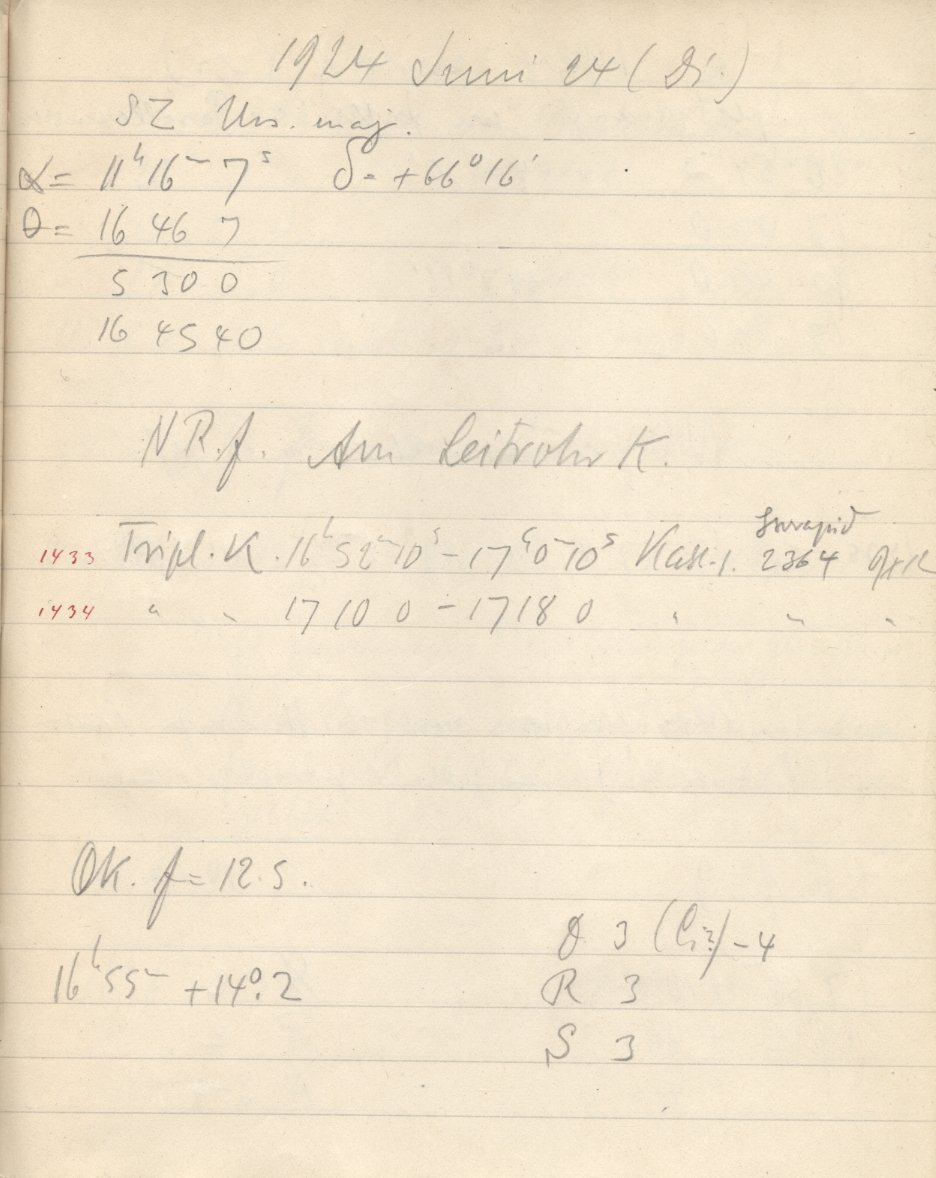 1924 Juni 24 (Di.)
SZ Urs. maj.
α = 11ʰ 16ᵐ 7ˢ δ = +66° 16'
θ = 16 46 7
5 30 0
16 45 40
N R. f. Am Leitrohr K.
1433 Tripl. K. 16ʰ 52ᵐ 10ˢ – 17ʰ 0ᵐ 10ˢ Kass. 1. 2364 9x12
1434 " " 17 10 0 – 17 18 0 " " "
Ok. f = 12.5.
16ʰ 55ᵐ +14°.2
D 3 (Ci?) – 4
R 3
S 3